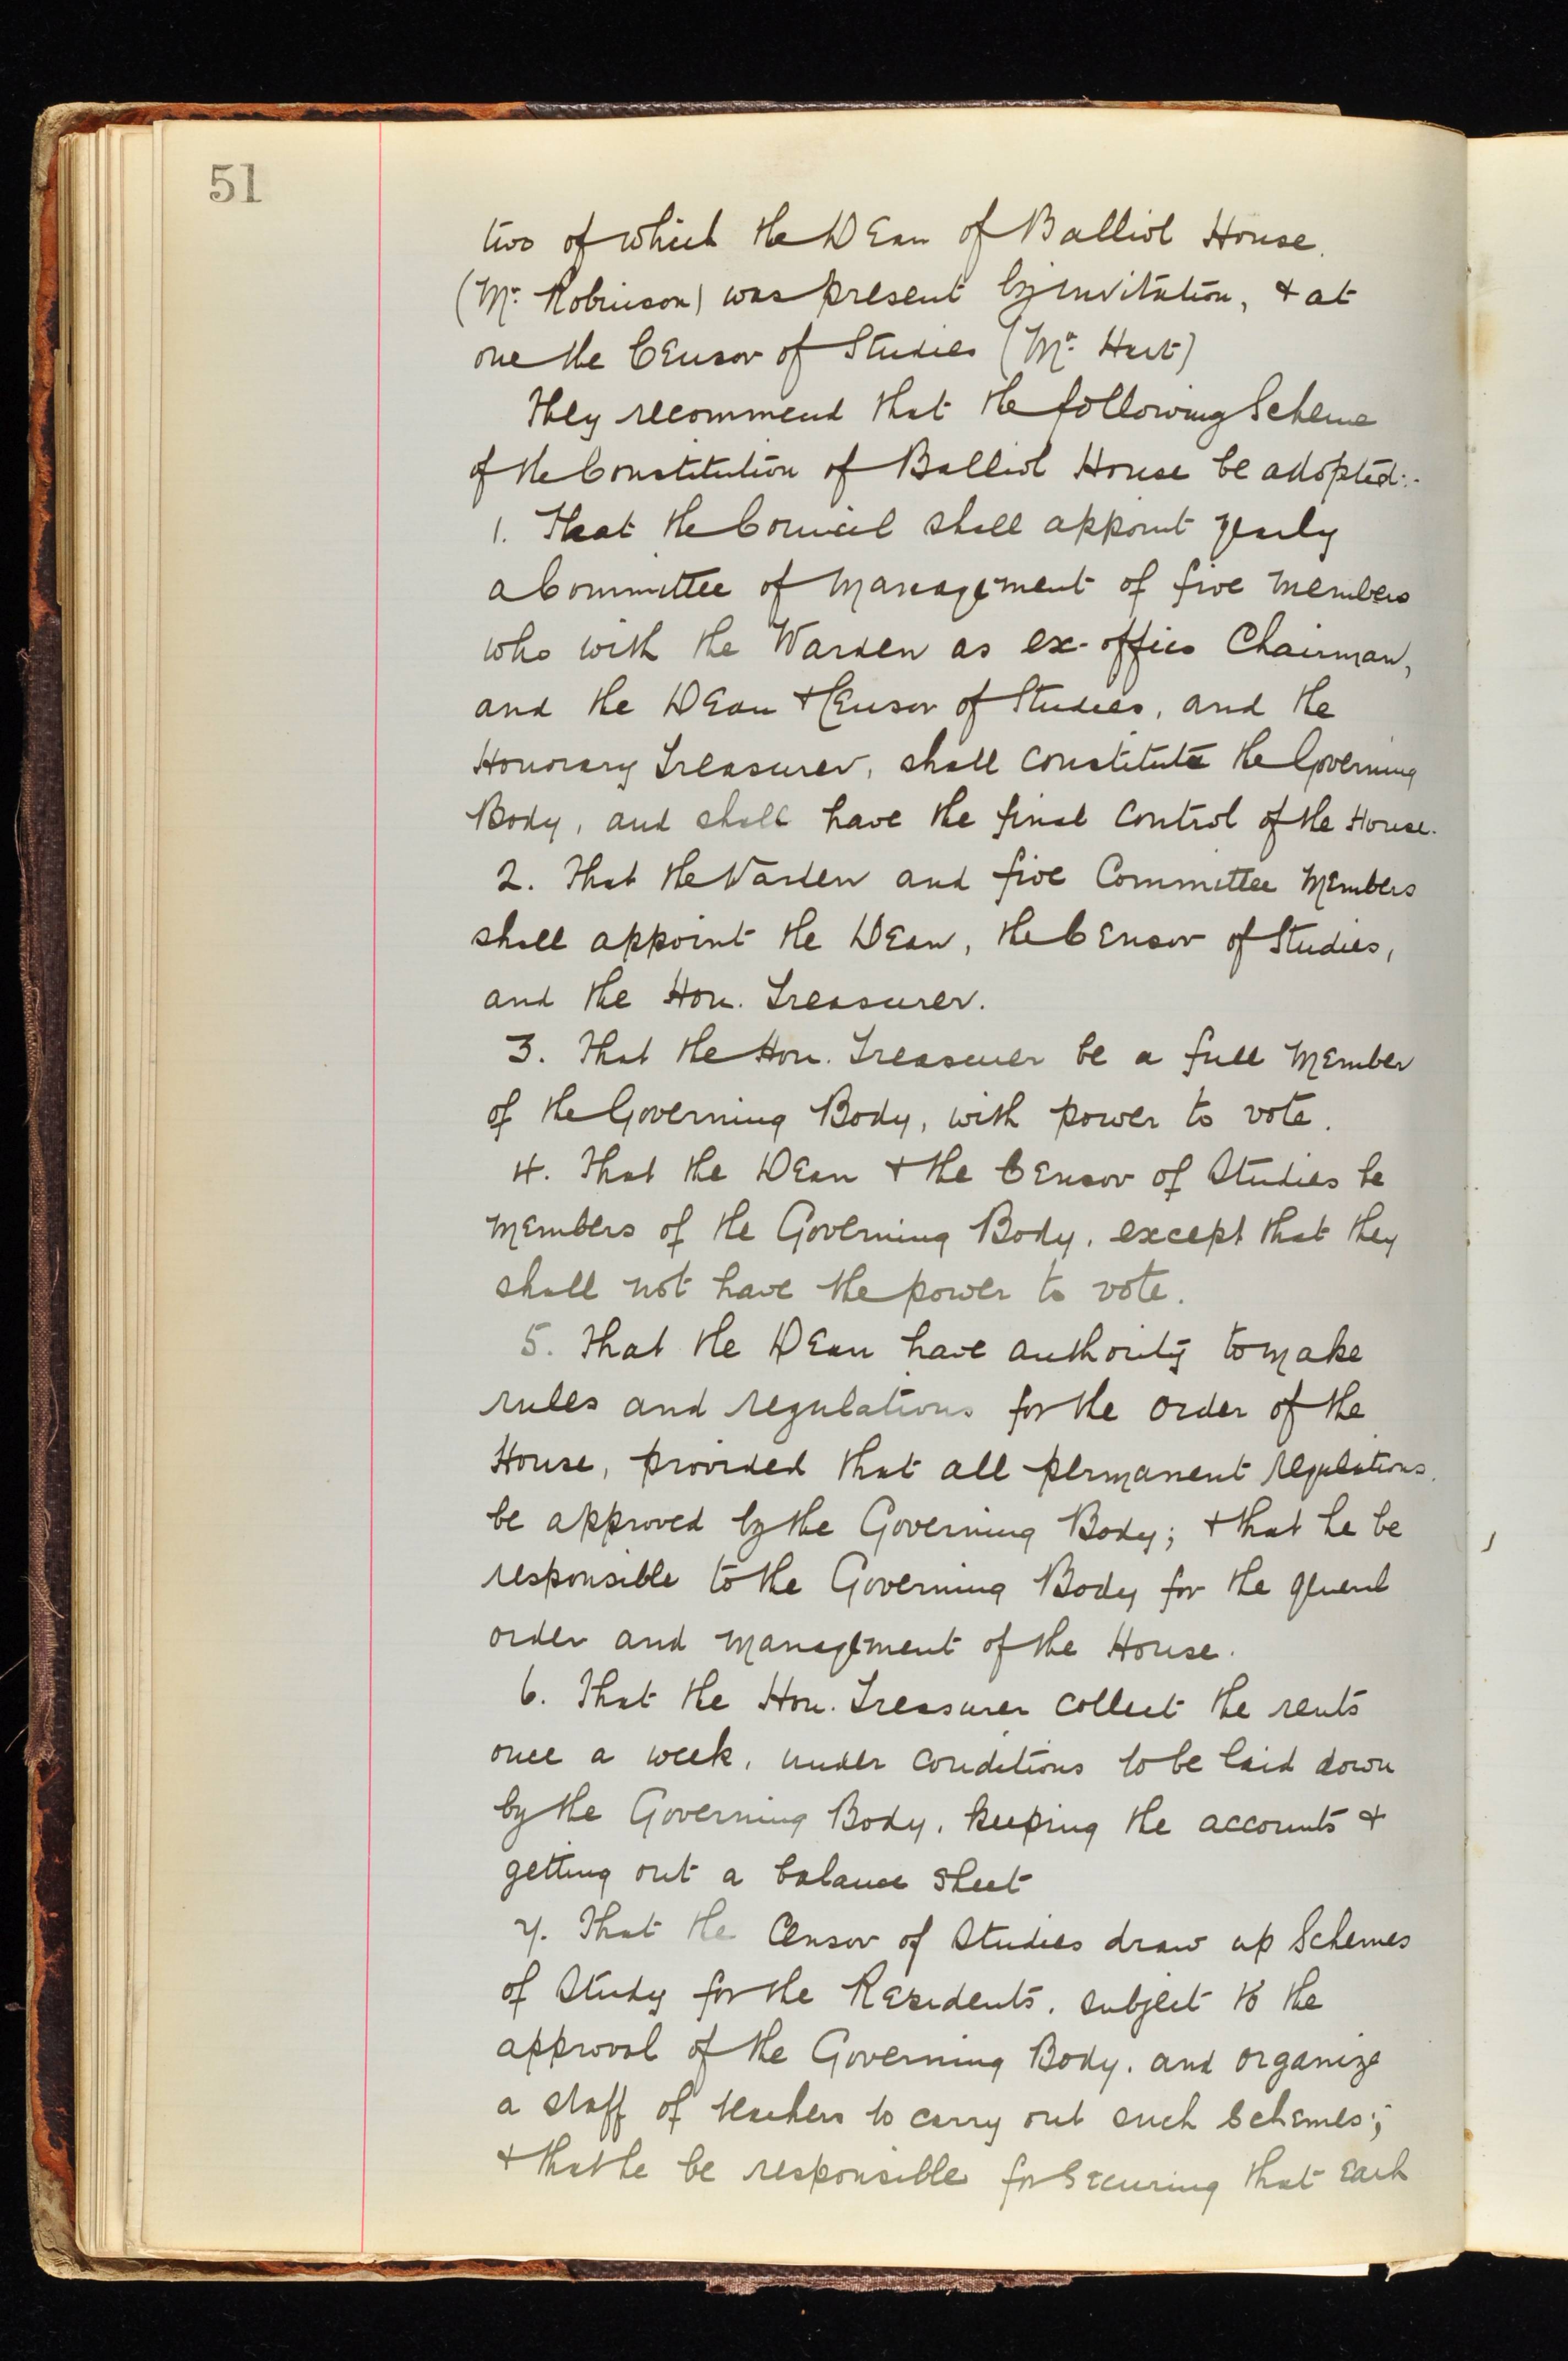 51
two of which the Dean of Balliol House.
(Mr. Robinson) was present by invitation, & at
one the Censor of Studies (Mr. Hart)
They recommend that the following Scheme
of the Constitution of Balliol House be adopted:-
1. That the Council shall appoint yearly
a Committee of Management of five members
who with the Warden as ex-officio Chairman,
and the Dean & Censor of Studies, and the
Honorary Treasurer, shall constitute the Governing
Body, and shall have the final control of the House.
2. That the Warden and five Committee Members
shall appoint the Dean, the Censor of Studies,
and the Hon. Treasurer.
3. That the Hon. Treasurer be a full Member
of the Governing Body, with power to vote.
4. That the Dean & the Censor of Studies be
Members of the Governing Body, except that they
shall not have the power to vote.
5. That the Dean have authority to make
rules and regulations for the order of the
House, provided that all permanent regulations
be approved by the Governing Body; & that he be
responsible to the Governing Body for the general
order and management of the House.
6. That the Hon. Treasurer collect the rents
once a week, under conditions to be laid down
by the Governing Body, keeping the accounts &
getting out a balance sheet
7. That the Censor of Studies draw up Schemes
of Study for the Residents, subject to the
approval of the Governing Body, and organize
a staff of teachers to carry out such Schemes;
& that he be responsible for securing that each